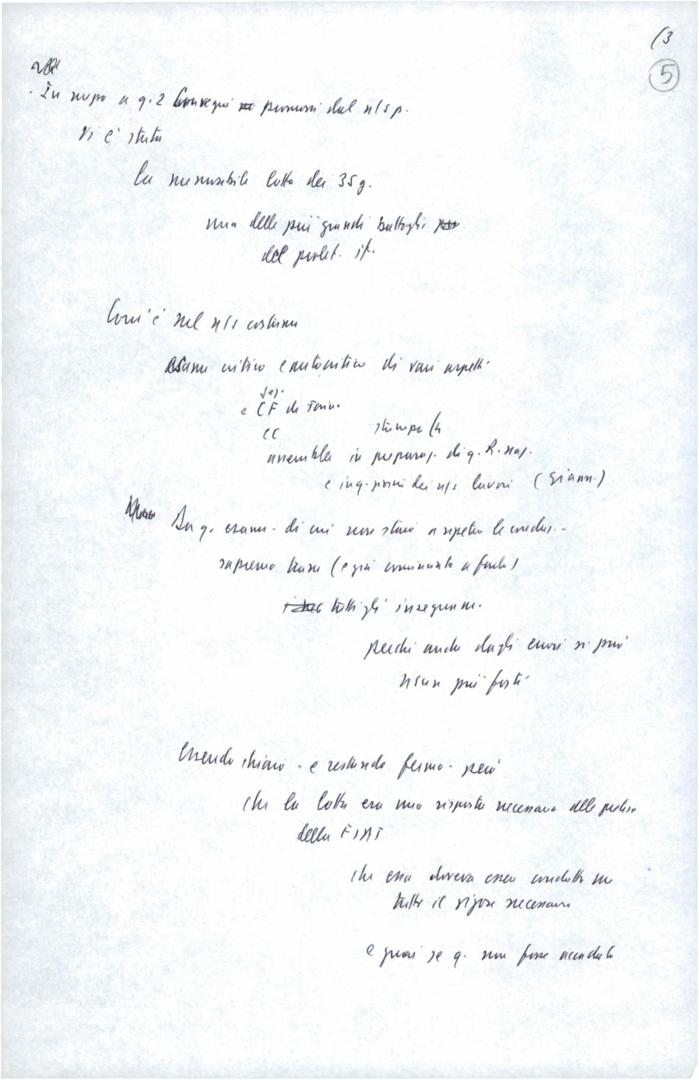 (3
5
. In mezzo a q. 2 Convegni promossi dal n/s p.
vi è stata
la memorabile lotta dei 35 g.
una delle più grandi battaglie
del prolet. it.
Com'è nel n/s costume
esame critico e autocritico di vari aspetti
e CF di Torino
CC stampa
assemblea in preparaz. di q. R. naz.
e in q. primi dei n/s lavori (Giann.)
Da q. esame - di cui non starò a ripetere le conclus. -
sapremo trarre (e già cominciato a farlo)
tutti gli insegnam.
perché anche dagli errori si può
uscire più forti
Essendo chiaro - e restando fermo - però
che la lotta era una risposta necessaria alle pretese
della FIAT
che essa doveva essere condotta con
tutto il rigore necessario
e guai se q. non fosse accaduto